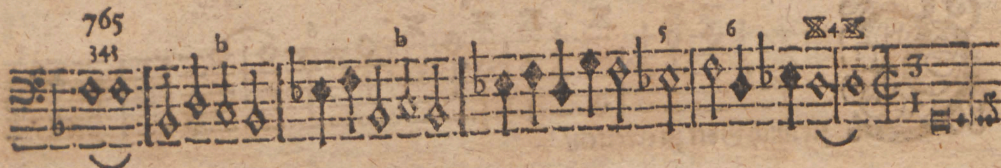 765
343 b b 5 6 4
3
1